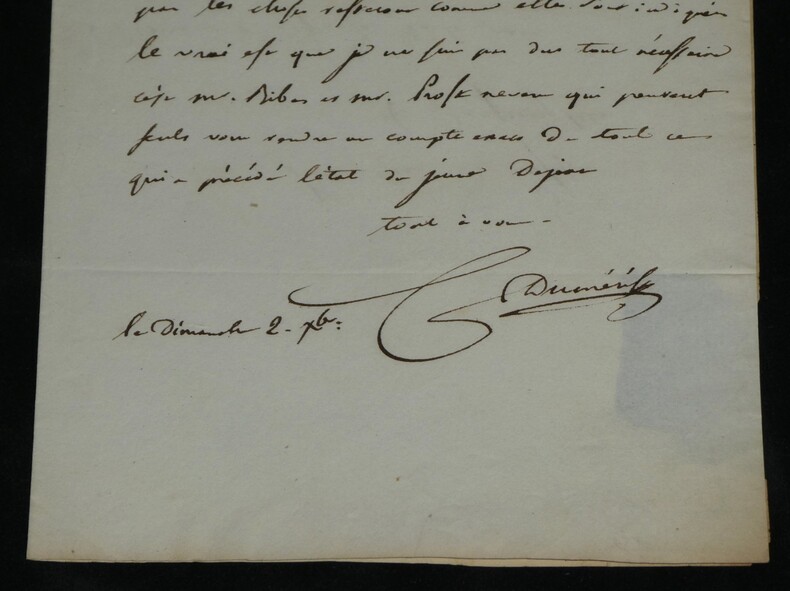 que les choses se passeront comme elles sont indiquées
le vrai est que je ne suis pas du tout nécessaire
c'est mr. Ribes et mr. Prost neveu qui peuvent
seuls vous rendre un compte exact de tout ce
qui a précédé l'état du jeune Dejean
tout à vous
C Duméril
le Dimanche 2. Xbre: